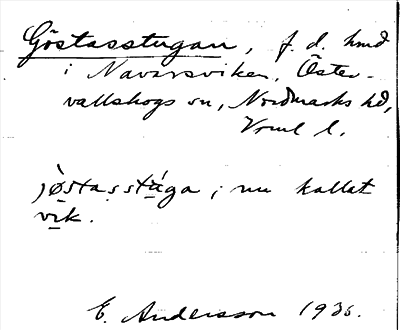 Göstasstugan, f. d. hmd
i Navarsviken, Öster-
vallskogs sn, Nordmarks hd,
Vrml l.
jö̀stasstúga, nu kallat
vik.
E. Andersson 1936.